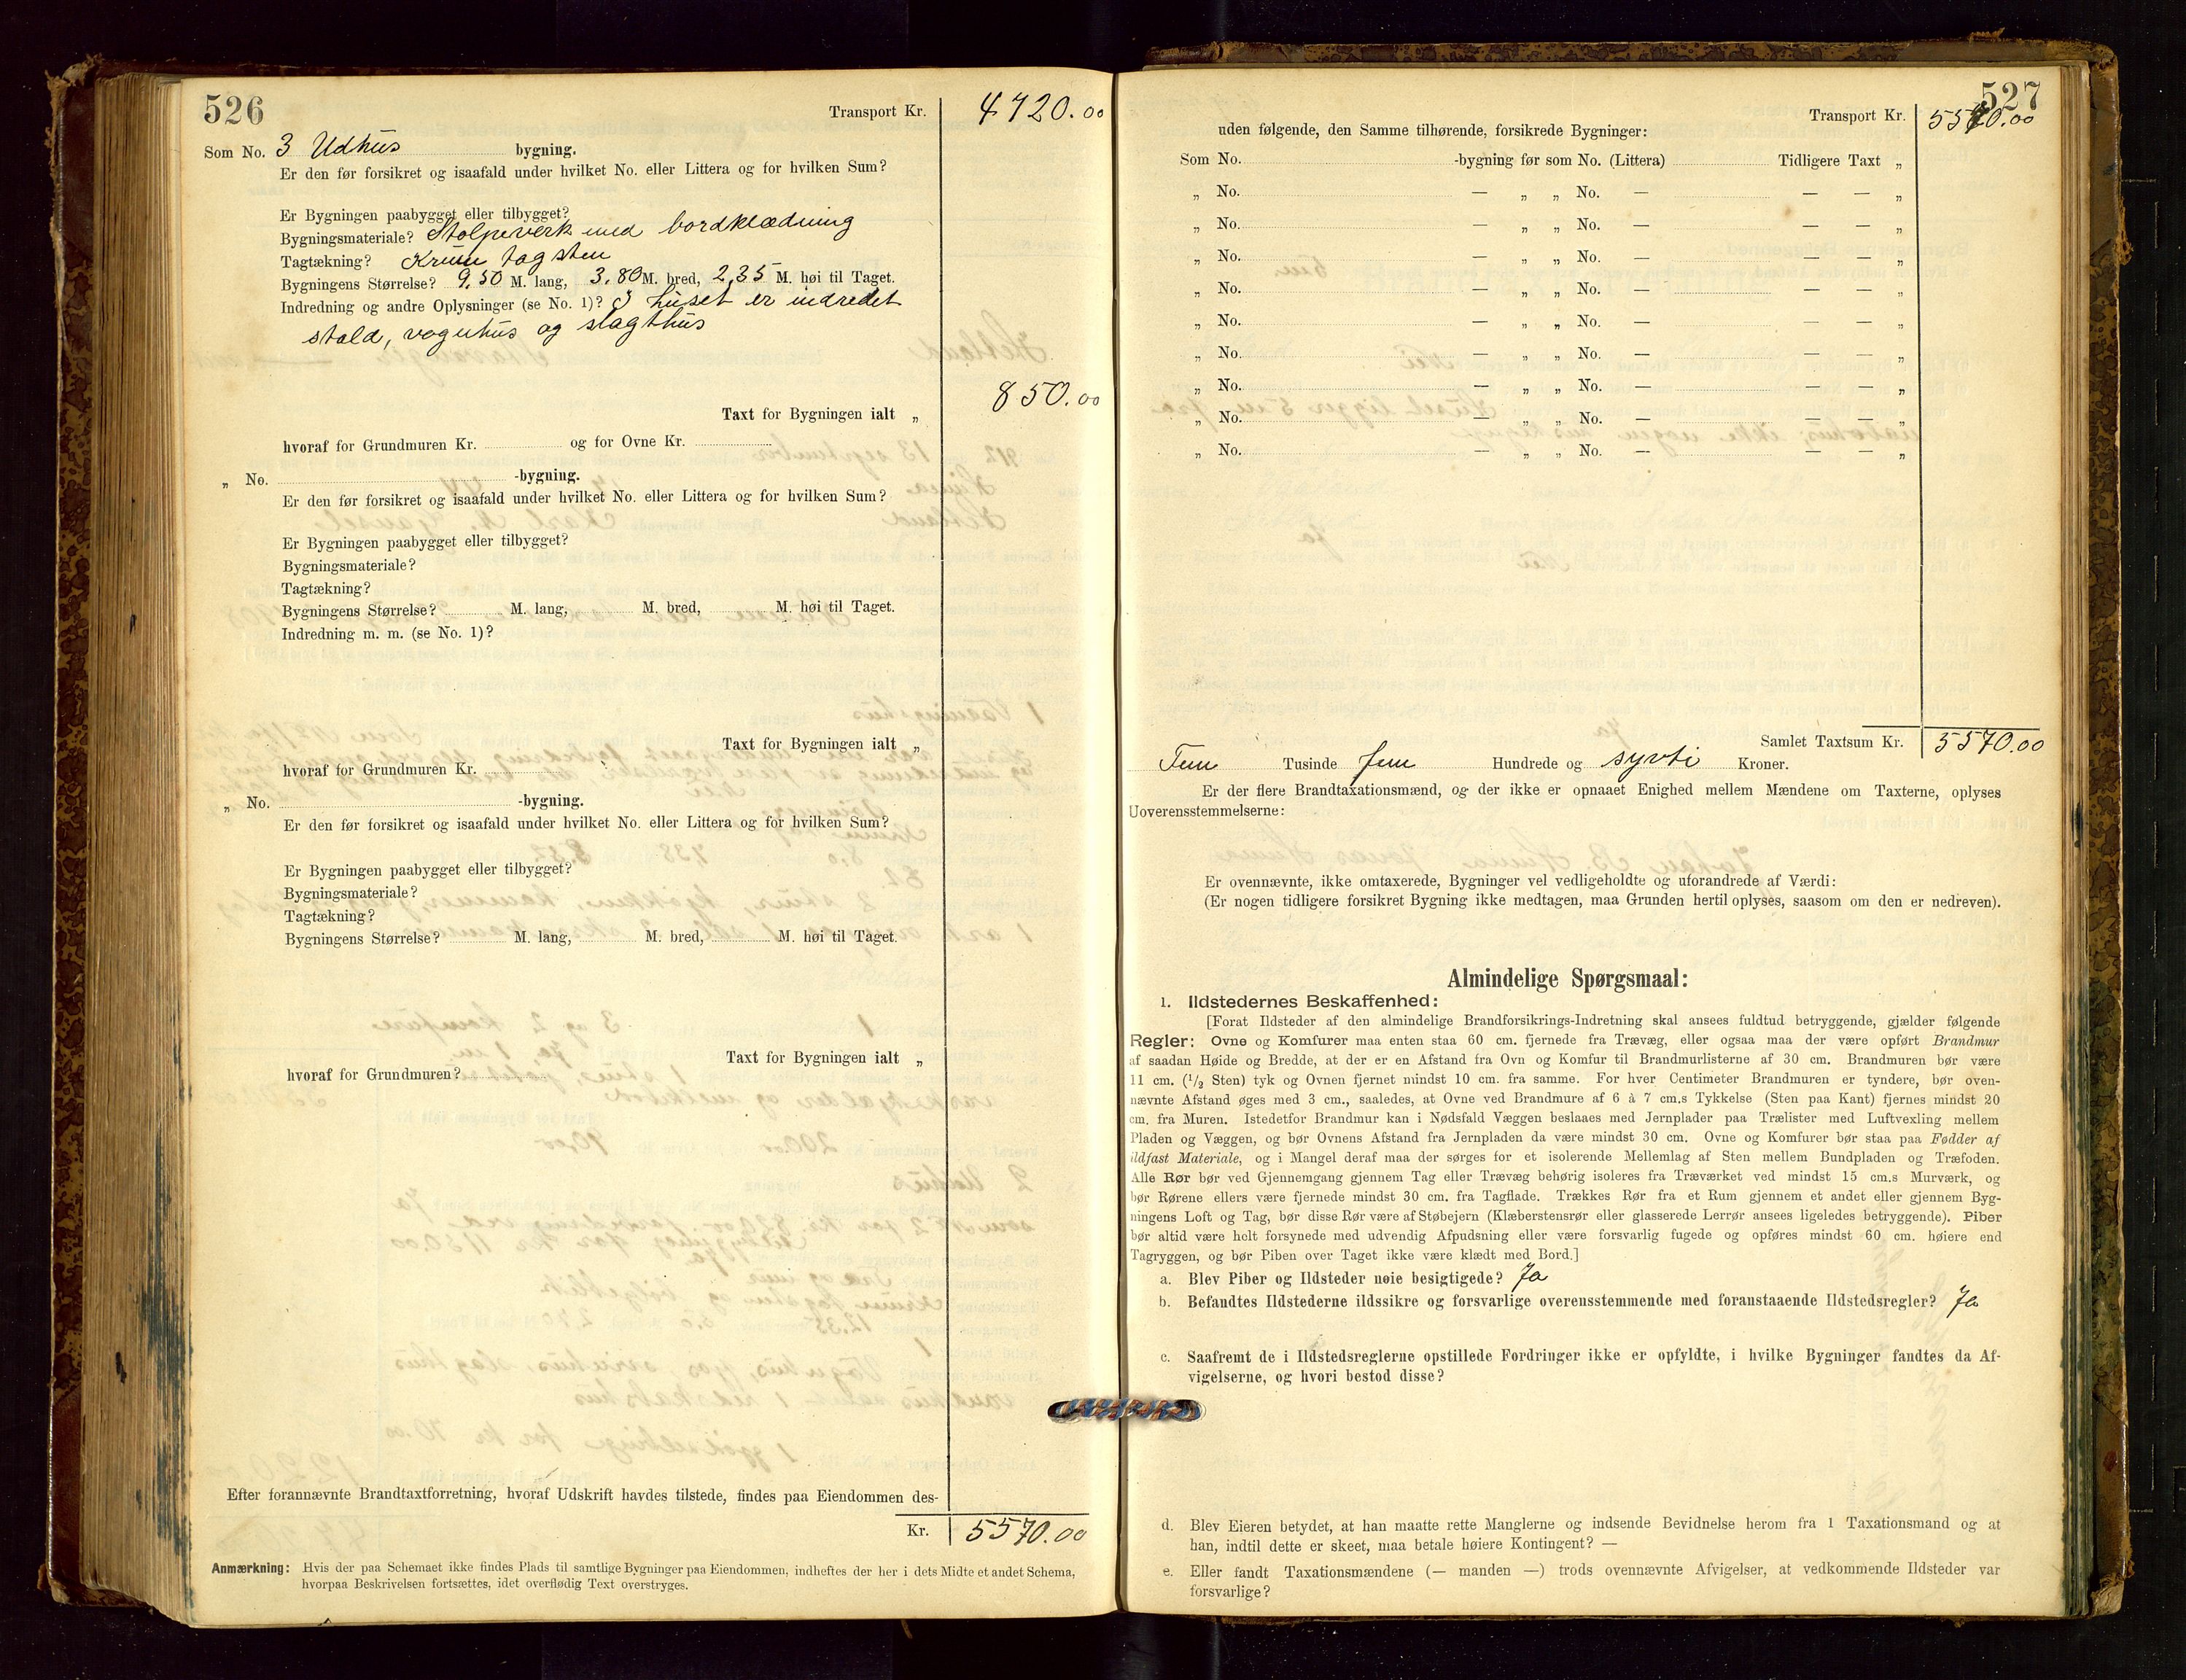 526
Transport Kr. 4720.00
Som No. 3 Udhus bygning.
Er den før forsikret og isaafald under hvilket No. eller Littera og for hvilken Sum?
Er Bygningen paabygget eller tilbygget?
Bygningsmateriale? Stolpeverk med bordklædning
Tagtækning? Krum tagsten
Bygningens Størrelse? 9,50 M. lang, 3,80 M. bred, 2,35 M. høi til Taget.
Indredning og andre Oplysninger (se No. 1)? I huset er indredet
stald, vognhus og slagthus
Taxt for Bygningen ialt „ 850.00
hvoraf for Grundmuren Kr. og for Ovne Kr.
„ No. -bygning.
Er den før forsikret og isaafald under hvilket No. eller Littera og for hvilken Sum?
Er Bygningen paabygget eller tilbygget?
Bygningsmateriale?
Tagtækning?
Bygningens Størrelse? M. lang, M. bred, M. høi til Taget.
Indredning m. m. (se No. 1)?
Taxt for Bygningen ialt „
hvoraf for Grundmuren Kr.
„ No. -bygning.
Er den før forsikret og isaafald under hvilket No. eller Littera og for hvilken Sum?
Er Bygningen paabygget eller tilbygget?
Bygningsmateriale?
Tagtækning?
Bygningens Størrelse? M. lang, M. bred, M. høi til Taget.
Taxt for Bygningen ialt „
hvoraf for Grundmuren?
Efter forannævnte Brandtaxtforretning, hvoraf Udskrift havdes tilstede, findes paa Eiendommen des-
Kr. 5570.00
Anmærkning: Hvis der paa Schemaet ikke findes Plads til samtlige Bygninger paa Eiendommen, indheftes der her i dets Midte et andet Schema,
hvorpaa Beskrivelsen fortsættes, idet overflødig Text overstryges.
527
Transport Kr. 5570.00
uden følgende, den Samme tilhørende, forsikrede Bygninger:
Som No. -bygning før som No. (Littera) Tidligere Taxt „
„ No. — „ „ No. — — — „
„ No. — „ „ No. — — — „
„ No. — „ „ No. — — — „
„ No. — „ „ No. — — — „
„ No. — „ „ No. — — — „
„ No. — „ „ No. — — — „
„ No. — „ „ No. — — — „
„ No. — „ „ No. — — — „
„ No. — „ „ No. — — — „
Samlet Taxtsum Kr. 5570.00
Fem Tusinde fem Hundrede og sytti Kroner.
Er der flere Brandtaxationsmænd, og der ikke er opnaaet Enighed mellem Mændene om Taxterne, oplyses
Uoverensstemmelserne:
Er ovennævnte, ikke omtaxerede, Bygninger vel vedligeholdte og uforandrede af Værdi:
(Er nogen tidligere forsikret Bygning ikke medtagen, maa Grunden hertil oplyses, saasom om den er nedreven).
Almindelige Spørgsmaal:
1. Ildstedernes Beskaffenhed:
[Forat Ildsteder af den almindelige Brandforsikrings-Indretning skal ansees fuldtud betryggende, gjælder følgende
Regler: Ovne og Komfurer maa enten staa 60 cm. fjernede fra Trævæg, eller ogsaa maa der være opført Brandmur
af saadan Høide og Bredde, at der er en Afstand fra Ovn og Komfur til Brandmurlisterne af 30 cm. Brandmuren bør være
11 cm. (1/2 Sten) tyk og Ovnen fjernet mindst 10 cm. fra samme. For hver Centimeter Brandmuren er tyndere, bør oven-
nævnte Afstand øges med 3 cm., saaledes, at Ovne ved Brandmure af 6 à 7 cm.s Tykkelse (Sten paa Kant) fjernes mindst 20
cm. fra Muren. Istedetfor Brandmur kan i Nødsfald Væggen beslaaes med Jernplader paa Trælister med Luftvexling mellem
Pladen og Væggen, og bør Ovnens Afstand fra Jernpladen da være mindst 30 cm. Ovne og Komfurer bør staa paa Fødder af
ildfast Materiale, og i Mangel deraf maa der sørges for et isolerende Mellemlag af Sten mellem Bundpladen og Træfoden.
Alle Rør bør ved Gjennemgang gjennem Tag eller Trævæg behørig isoleres fra Træværket ved mindst 15 cm.s Murværk, og
bør Rørene ellers være fjernede mindst 30 cm. fra Tagflade. Trækkes Rør fra et Rum gjennem et andet eller gjennem Byg-
ningens Loft og Tag, bør disse Rør være af Støbejern (Klæberstensrør eller glasserede Lerrør ansees ligeledes betryggende). Piber
bør altid være holt forsynede med udvendig Afpudsning eller være forsvarlig fugede og opføres mindst 60 cm. høiere end
Tagryggen, og bør Piben over Taget ikke være klædt med Bord.]
a. Blev Piber og Ildsteder nøie besigtigede? Ja
b. Befandtes Ildstederne ildssikre og forsvarlige overensstemmende med foranstaaende Ildstedsregler? Ja
c. Saafremt de i Ildstedsreglerne opstillede Fordringer ikke er opfyldte, i hvilke Bygninger fandtes da Af-
vigelserne, og hvori bestod disse?
d. Blev Eieren betydet, at han maatte rette Manglerne og indsende Bevidnelse herom fra 1 Taxationsmand og at
han, indtil dette er skeet, maa betale høiere Kontingent? —
e. Eller fandt Taxationsmændene (— manden —) trods ovennævnte Afvigelser, at vedkommende Ildsteder var
forsvarlige?